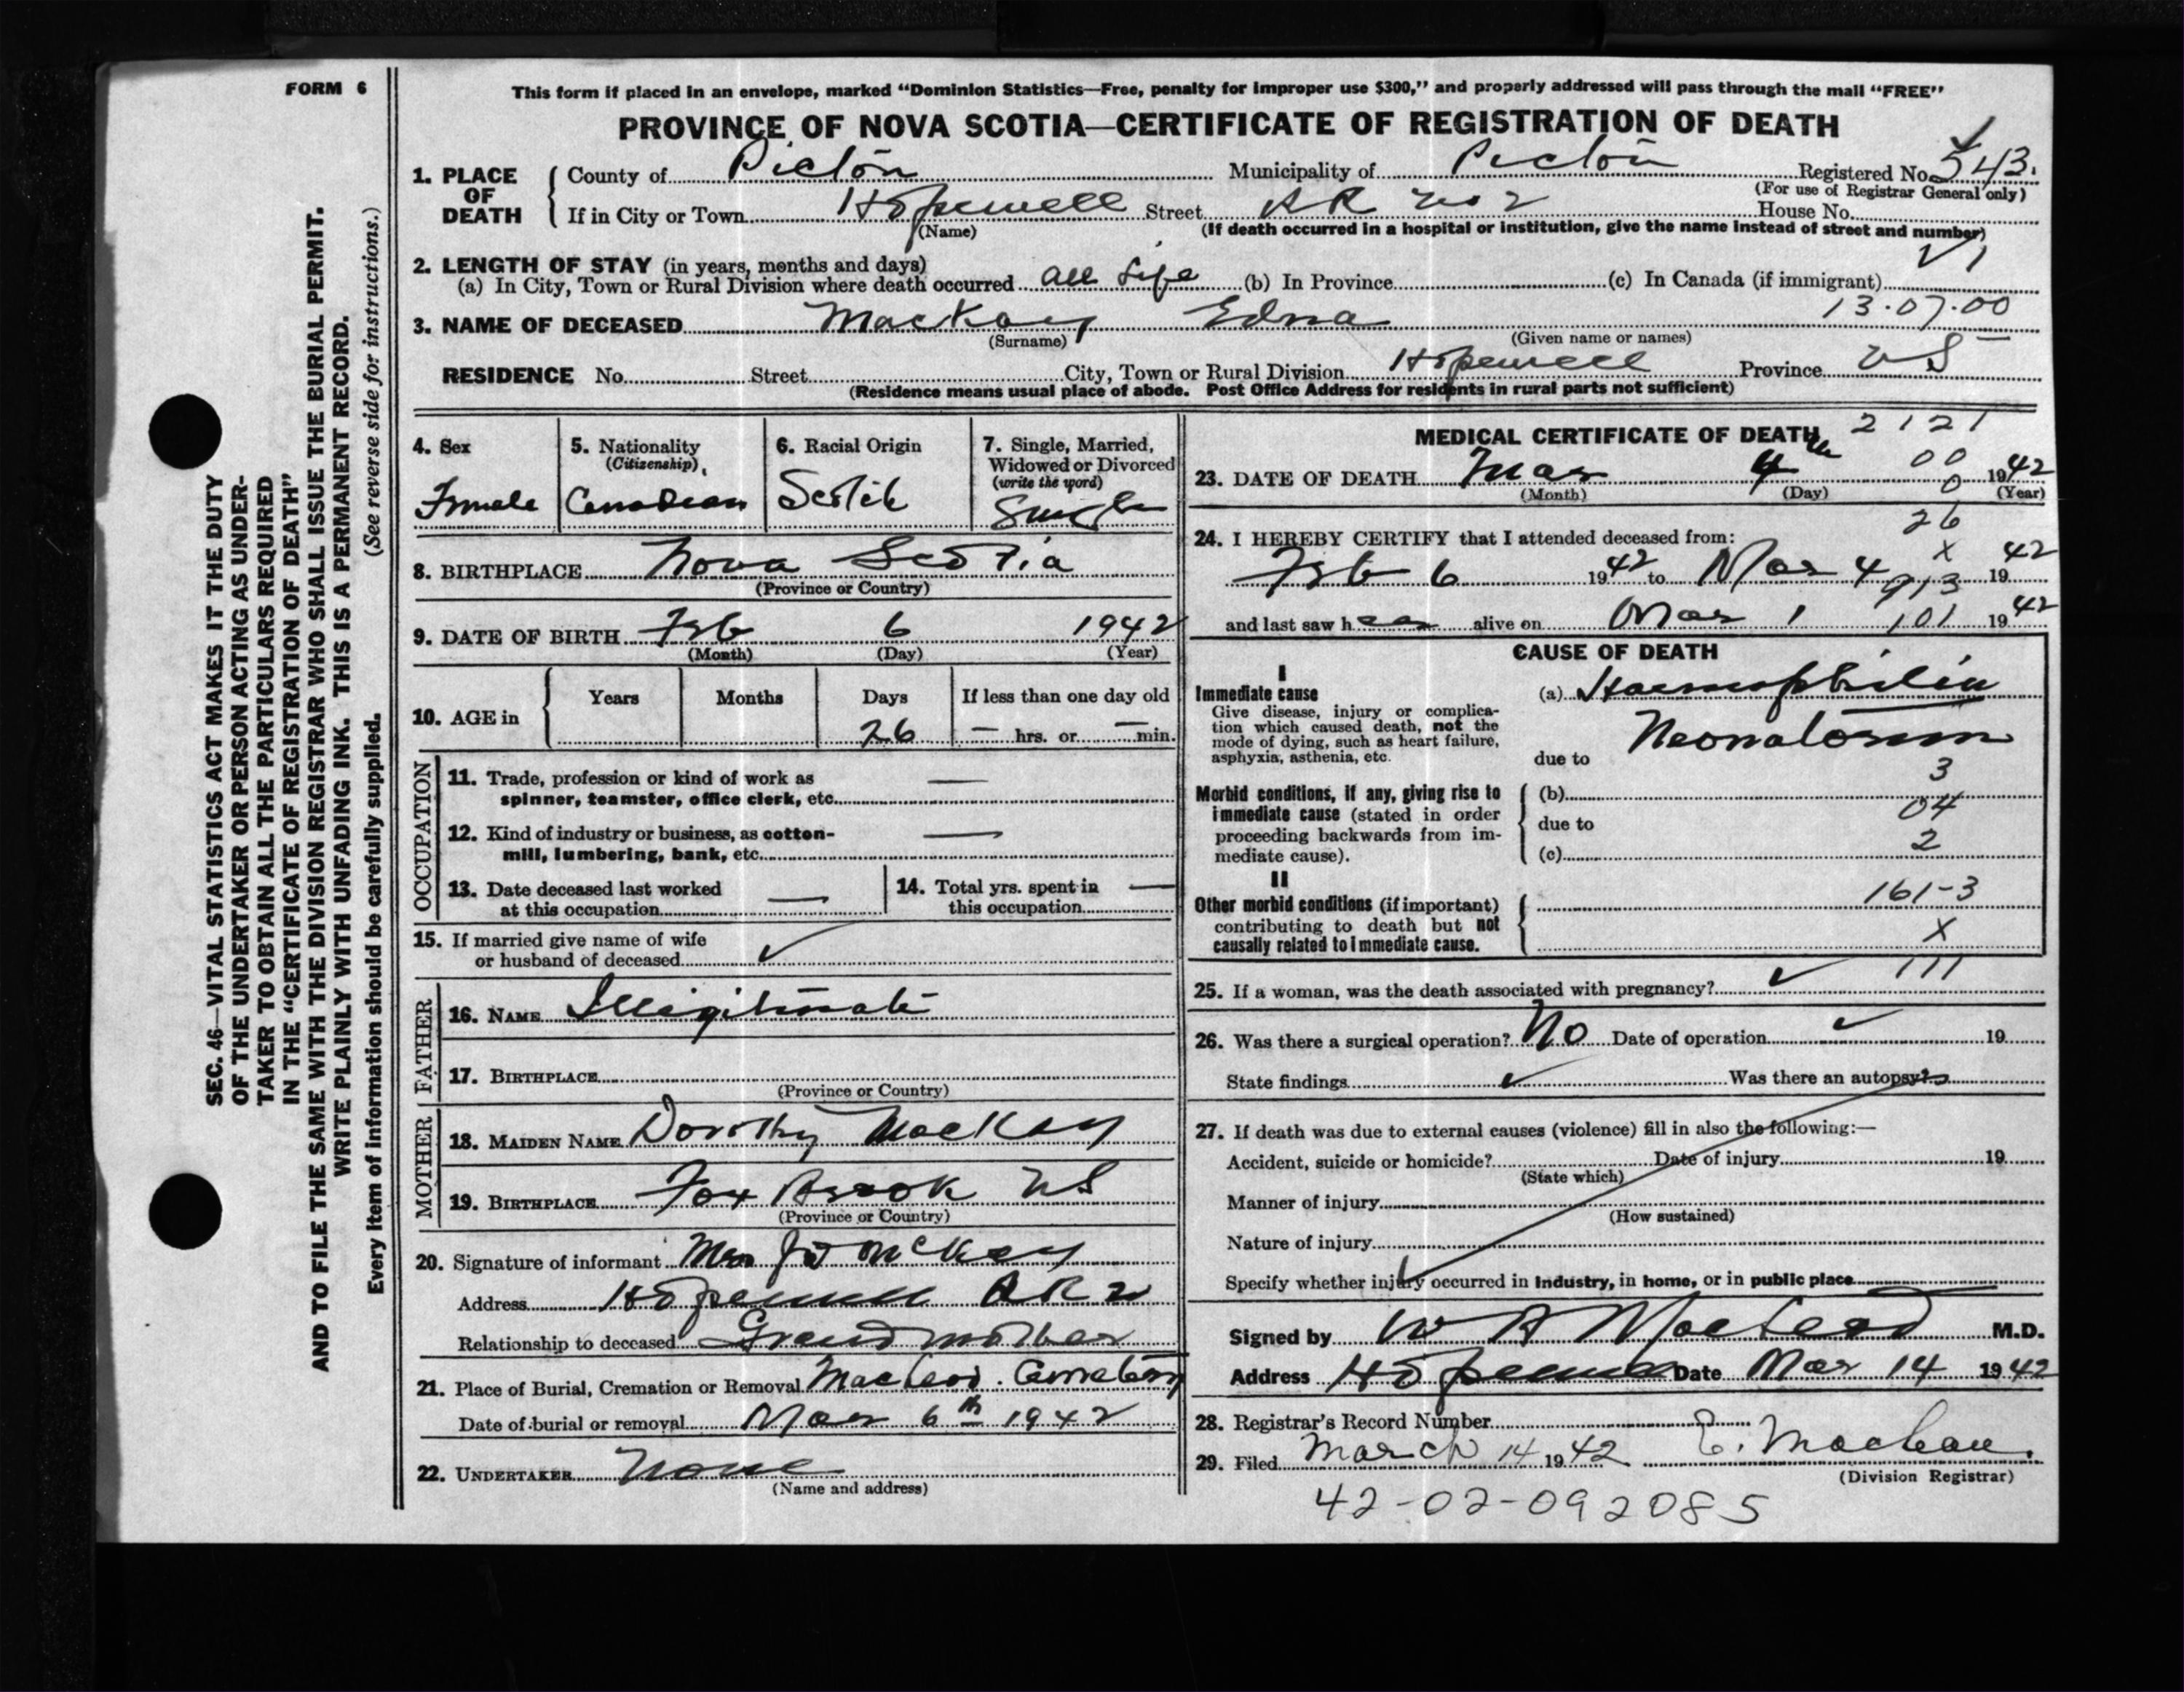 FORM 6
This form if placed in an envelope, marked "Dominion Statistics—Free, penalty for improper use $300," and properly addressed will pass through the mail "FREE"
PROVINCE OF NOVA SCOTIA—CERTIFICATE OF REGISTRATION OF DEATH
1. PLACE OF DEATH County of Pictou Municipality of Pictou Registered No. 543.
(For use of Registrar General only)
If in City or Town Hopewell Street RR No 2 House No.
(Name) (If death occurred in a hospital or institution, give the name instead of street and number)
2. LENGTH OF STAY (in years, months and days)
(a) In City, Town or Rural Division where death occurred all Life (b) In Province (c) In Canada (if immigrant)
13.07.00
3. NAME OF DECEASED MacKay Edna
(Surname) (Given name or names)
RESIDENCE No. Street City, Town or Rural Division Hopewell Province NS
(Residence means usual place of abode. Post Office Address for residents in rural parts not sufficient)
4. Sex Female
5. Nationality (Citizenship) Canadian
6. Racial Origin Scotch
7. Single, Married, Widowed or Divorced (write the word) Single
8. BIRTHPLACE Nova Scotia
(Province or Country)
9. DATE OF BIRTH Feb 6 1942
(Month) (Day) (Year)
10. AGE in Years Months Days If less than one day old
26 — hrs. or — min.
OCCUPATION
11. Trade, profession or kind of work as spinner, teamster, office clerk, etc. —
12. Kind of industry or business, as cotton-mill, lumbering, bank, etc. —
13. Date deceased last worked at this occupation —
14. Total yrs. spent in this occupation —
15. If married give name of wife or husband of deceased ✓
FATHER
16. NAME Illegitimate
17. BIRTHPLACE
(Province or Country)
MOTHER
18. MAIDEN NAME Dorothy MacKay
19. BIRTHPLACE Fox Brook NS
(Province or Country)
20. Signature of informant Mrs J W McKay
Address Hopewell RR 2
Relationship to deceased Grandmother
21. Place of Burial, Cremation or Removal MacLeod Cemetery
Date of burial or removal Mar 6th 1942
22. UNDERTAKER None
(Name and address)
MEDICAL CERTIFICATE OF DEATH 2121
00
0
23. DATE OF DEATH Mar 4th 1942
(Month) (Day) (Year)
26
X
24. I HEREBY CERTIFY that I attended deceased from:
Feb 6 1942 to Mar 4 1942
913
and last saw her alive on Mar 1 1942
101
CAUSE OF DEATH
I
Immediate cause
Give disease, injury or complication which caused death, not the mode of dying, such as heart failure, asphyxia, asthenia, etc.
(a) Haemophilia
Neonatorum
due to
3
Morbid conditions, if any, giving rise to immediate cause (stated in order proceeding backwards from immediate cause).
(b)
04
due to
2
(c)
II
Other morbid conditions (if important) contributing to death but not causally related to immediate cause.
161-3
X
111
25. If a woman, was the death associated with pregnancy? ✓
26. Was there a surgical operation? No Date of operation ✓ 19
State findings ✓ Was there an autopsy?
27. If death was due to external causes (violence) fill in also the following:—
Accident, suicide or homicide? Date of injury 19
(State which)
Manner of injury
(How sustained)
Nature of injury
Specify whether injury occurred in industry, in home, or in public place
Signed by W A MacLeod M.D.
Address Hopewell Date Mar 14 1942
28. Registrar's Record Number
29. Filed March 14 1942 E. MacLean.
(Division Registrar)
42-02-092085
SEC. 46—VITAL STATISTICS ACT MAKES IT THE DUTY
OF THE UNDERTAKER OR PERSON ACTING AS UNDER-
TAKER TO OBTAIN ALL THE PARTICULARS REQUIRED
IN THE "CERTIFICATE OF REGISTRATION OF DEATH"
AND TO FILE THE SAME WITH THE DIVISION REGISTRAR WHO SHALL ISSUE THE BURIAL PERMIT.
WRITE PLAINLY WITH UNFADING INK. THIS IS A PERMANENT RECORD.
Every item of information should be carefully supplied. (See reverse side for instructions.)